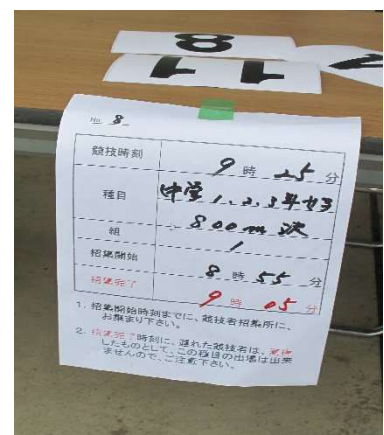 8
11
No. 8
競技時刻 9 時 25 分
種目 中学1,2,3年女子
800m 決
組 1
招集開始 8 時 55 分
招集完了 9 時 05 分
1. 招集開始時刻までに、競技者招集所に、
お集まり下さい。
2. 招集完了時刻に、遅れた競技者は、棄権
したものとして、この種目の出場は出来
ませんので、ご注意下さい。